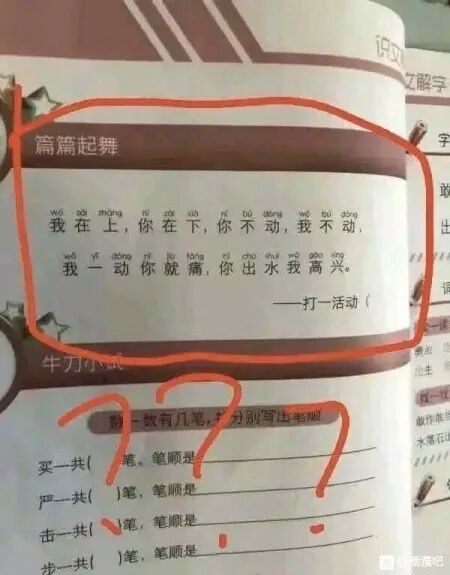 识文
篇篇起舞
wǒ zài shàng nǐ zài xià nǐ bú dòng wǒ bú dòng
我在上，你在下，你不动，我不动，
wǒ yí dòng nǐ jiù tòng nǐ chū shuǐ wǒ gāo xìng
我一动你就痛，你出水我高兴。
——打一活动（
牛刀小试
数一数有几笔，并分别写出笔顺
买一共( )笔，笔顺是
严一共( )笔，笔顺是
击一共( )笔，笔顺是
步一共( )笔，笔顺是
???
文解字
字
敢
出
词
读一读
勇敢
出生
找一找
敢作敢当
水落石出